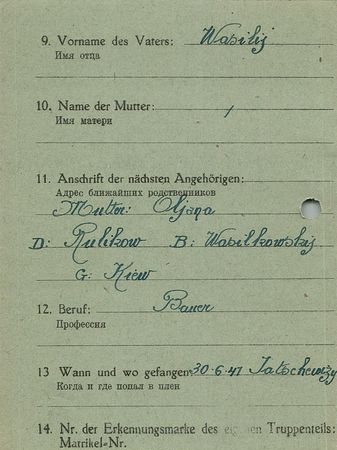 9. Vorname des Vaters: Wasilij
Имя отца
10. Name der Mutter: /
Имя матери
11. Anschrift der nächsten Angehörigen:
Адрес ближайших родственников
Mutter: Uljana
D: Rulikow B: Wasilkowskij
G: Kiew
12. Beruf: Bauer
Профессия
13 Wann und wo gefangen 30.6.41
Когда и где попал в плен
14. Nr. der Erkennungsmarke des eigenen Truppenteils:
Matrikel-Nr.